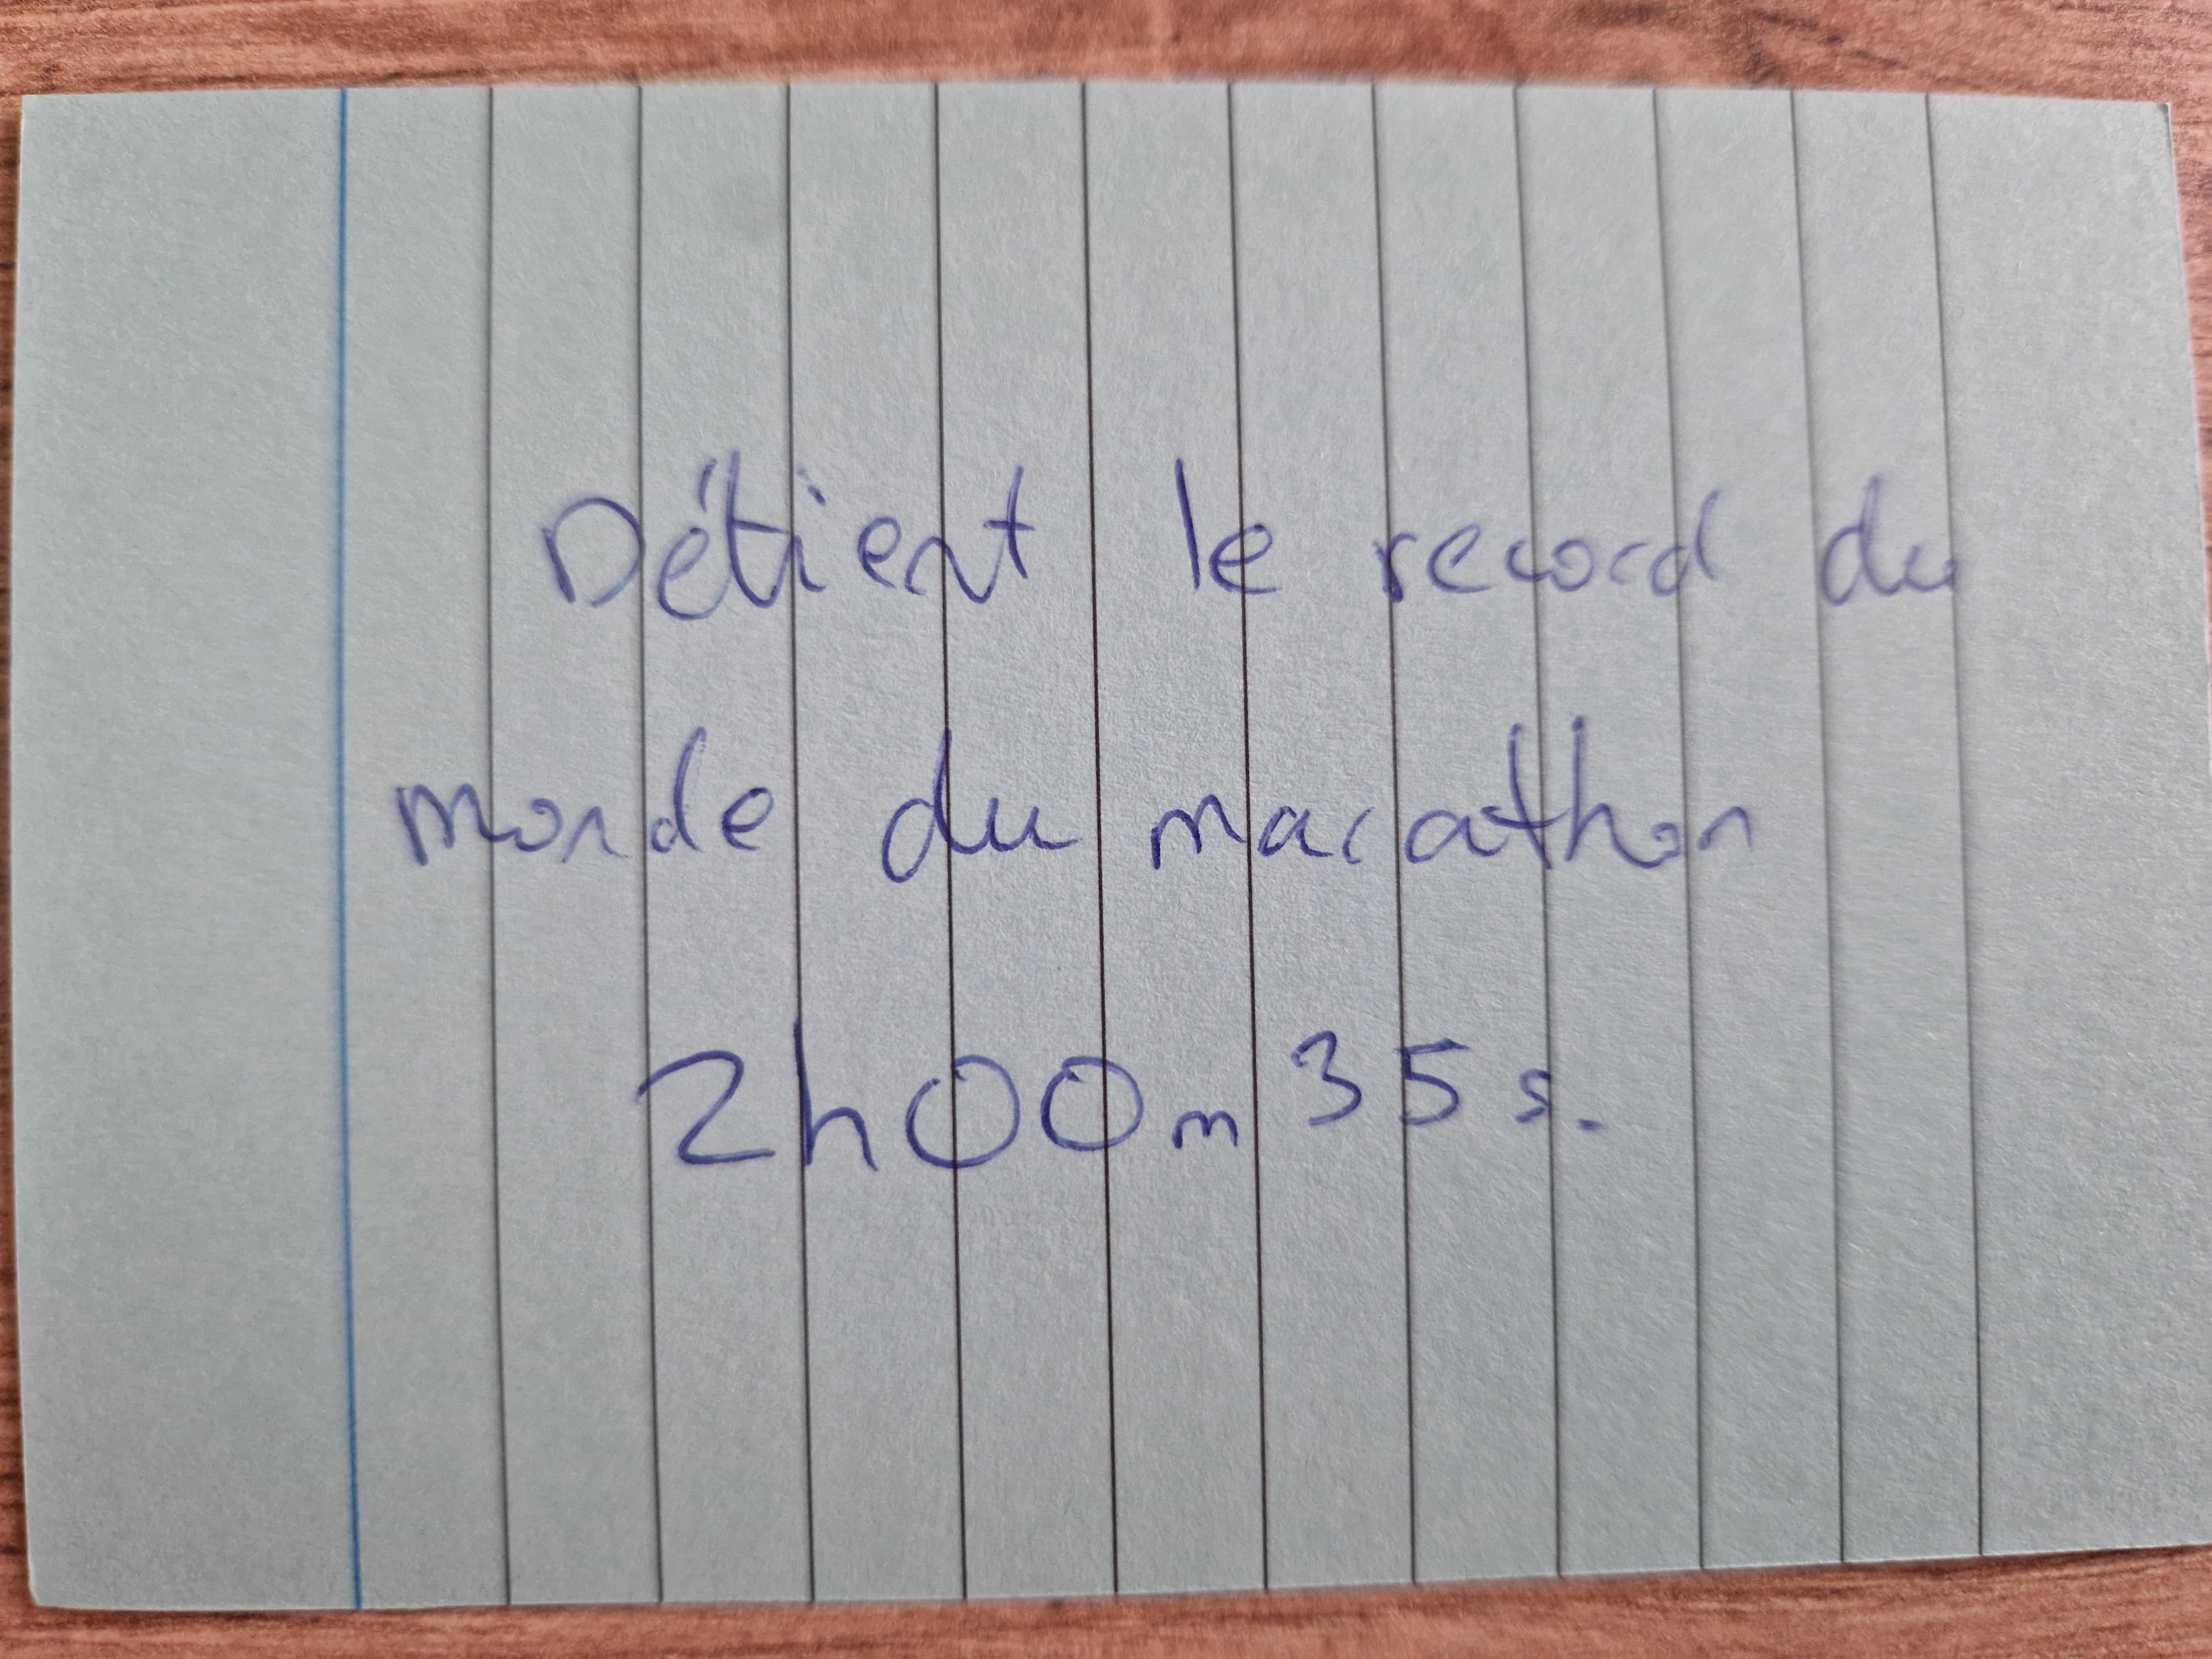 Détient le record du
monde du marathon
2h00m35s.